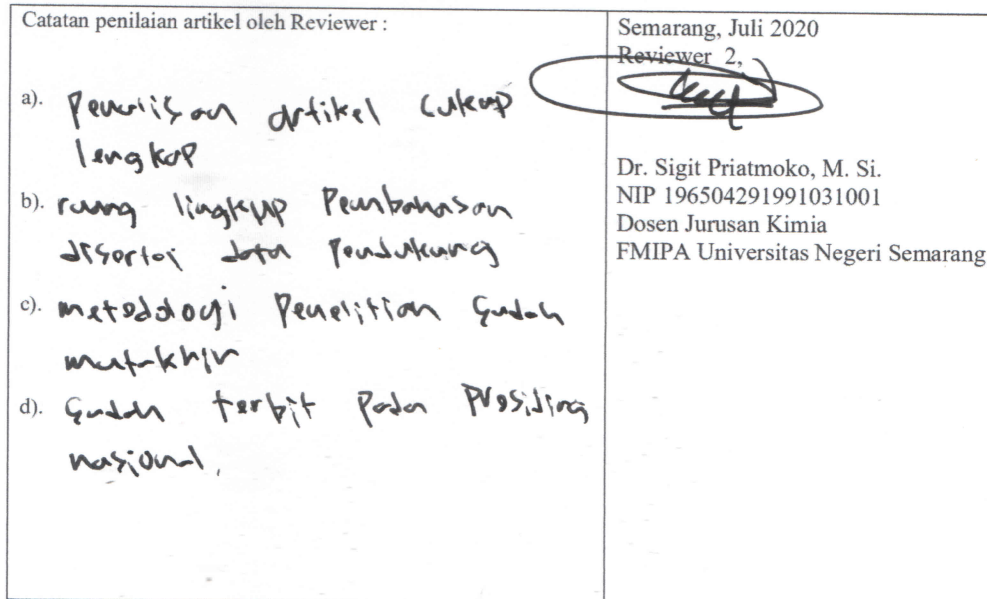 Catatan penilaian artikel oleh Reviewer :
a). Penulisan artikel cukup
lengkap
b). ruang lingkup Pembahasan
disertai data Pendukung
c). metodologi Penelitian sudah
mutakhir
d). sudah terbit pada Prosiding
nasional.
Semarang, Juli 2020
Reviewer 2,
Dr. Sigit Priatmoko, M. Si.
NIP 196504291991031001
Dosen Jurusan Kimia
FMIPA Universitas Negeri Semarang